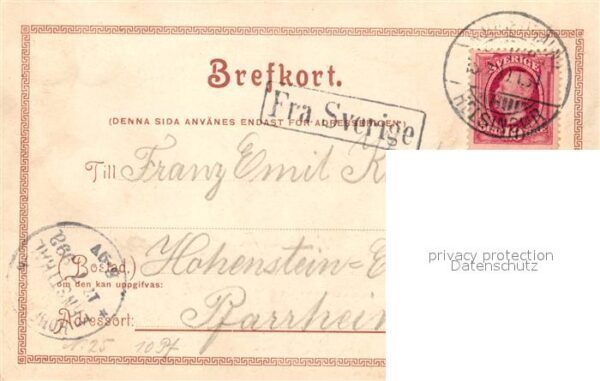 Brefkort.
SVERIGE
10
HELSINGÖR
Fra Sverige
(DENNA SIDA ANVÄNES ENDAST FÖR ADRESSERINGEN.)
Till Franz Emil
privacy protection
Datenschutz
(Bostad.) Hohenstein=E
om den kan uppgifvas:
Adressort: Pfarrhein
No. 25 10 Pf